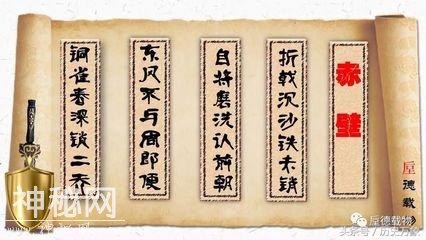 赤壁
折戟沉沙铁未销
自将磨洗认前朝
东风不与周郎便
铜雀春深锁二乔
垕德载
神秘网
垕德载物
头条号